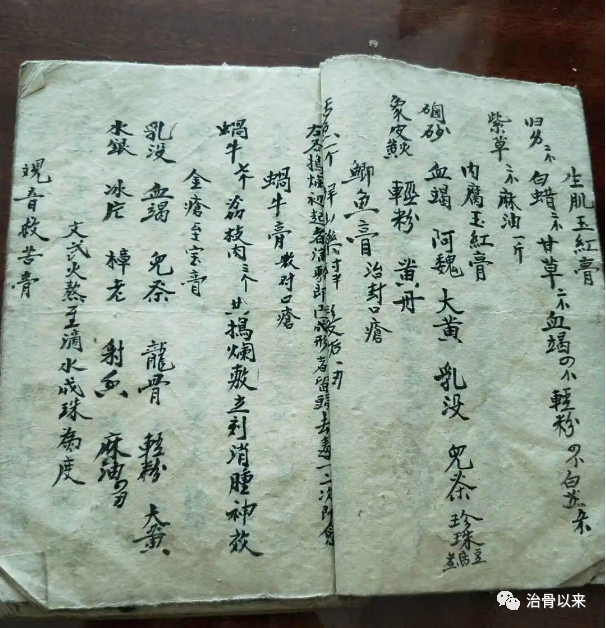 生肌玉紅膏
归身 白蜡 甘草 血竭 輕粉 白芷
紫草 麻油一斤
内腐玉紅膏
硇砂 血竭 阿魏 大黄 乳没 児茶 珍珠
象皮 輕粉 黄丹
鯽魚膏 治対口瘡
右为搗爛 初起者 即 形者留 去毒一二次即愈
蝸牛膏 敷对口瘡
蝸牛 荔枝肉三个 共搗爛敷立刻消腫神效
金瘡至宝膏
乳没 血竭 児茶 龍骨 輕粉 大黄
水銀 冰片 樟 射香 麻油
文武火熬至滴水成珠為度
观音救苦膏
治骨以来